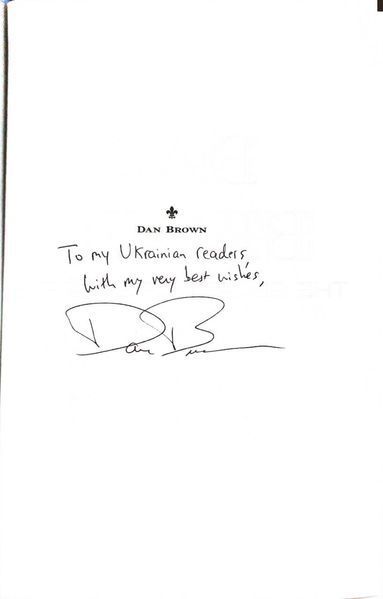 DAN BROWN
To my Ukrainian readers,
with my very best wishes,
Dan Brown